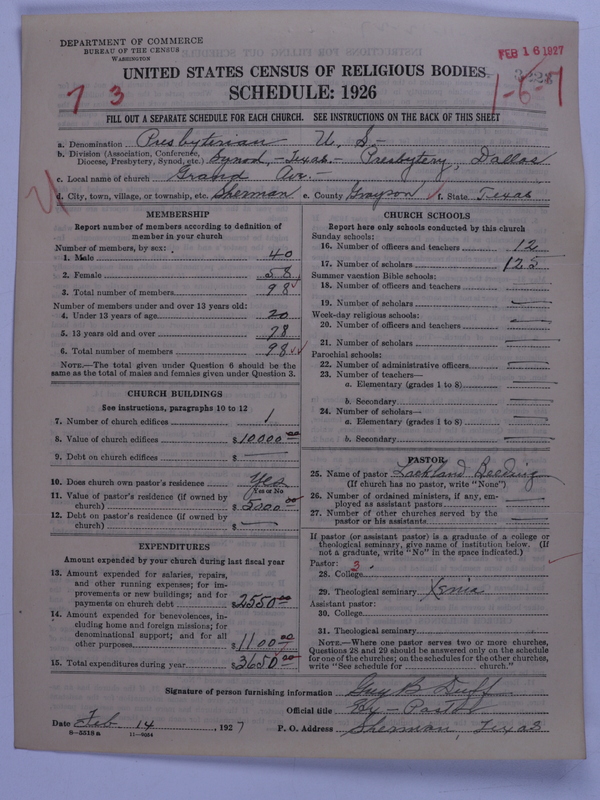 DEPARTMENT OF COMMERCE
BUREAU OF THE CENSUS
WASHINGTON
FEB 16 1927
UNITED STATES CENSUS OF RELIGIOUS BODIES
SCHEDULE: 1926
7 3
1-6-1
FILL OUT A SEPARATE SCHEDULE FOR EACH CHURCH. SEE INSTRUCTIONS ON THE BACK OF THIS SHEET
a. Denomination Presbyterian U. S.-
b. Division (Association, Conference, Diocese, Presbytery, Synod, etc.) Synod,-Texas.- Presbytery, Dallas
c. Local name of church Grand Av.-
d. City, town, village, or township, etc. Sherman e. County Grayson f. State Texas
MEMBERSHIP
Report number of members according to definition of
member in your church
Number of members, by sex:
1. Male 40
2. Female 58
3. Total number of members 98
Number of members under and over 13 years old:
4. Under 13 years of age 20
5. 13 years old and over 78
6. Total number of members 98
NOTE.—The total given under Question 6 should be the
same as the total of males and females given under Question 3.
CHURCH BUILDINGS
See instructions, paragraphs 10 to 12
7. Number of church edifices 1
8. Value of church edifices $10000.00
9. Debt on church edifices $ —
10. Does church own pastor's residence Yes
(Yes or No)
11. Value of pastor's residence (if owned by
church) $5000.00
12. Debt on pastor's residence (if owned by
church) $ —
EXPENDITURES
Amount expended by your church during last fiscal year
13. Amount expended for salaries, repairs,
and other running expenses; for im-
provements or new buildings; and for
payments on church debt $2550.00
14. Amount expended for benevolences, in-
cluding home and foreign missions; for
denominational support; and for all
other purposes $1100.00
15. Total expenditures during year $3650.00
CHURCH SCHOOLS
Report here only schools conducted by this church
Sunday schools:
16. Number of officers and teachers 12
17. Number of scholars 125
Summer vacation Bible schools:
18. Number of officers and teachers —
19. Number of scholars —
Week-day religious schools:
20. Number of officers and teachers —
21. Number of scholars —
Parochial schools:
22. Number of administrative officers —
23. Number of teachers—
a. Elementary (grades 1 to 8) —
b. Secondary —
24. Number of scholars—
a. Elementary (grades 1 to 8) —
b. Secondary —
PASTOR
25. Name of pastor Lockland Beeding
(If church has no pastor, write "None")
26. Number of ordained ministers, if any, em-
ployed as assistant pastors —
27. Number of other churches served by the
pastor or his assistants —
If pastor (or assistant pastor) is a graduate of a college or
theological seminary, give name of institution below. (If
not a graduate, write "No" in the space indicated.)
Pastor: 3
28. College
29. Theological seminary Xenia
Assistant pastor:
30. College
31. Theological seminary
NOTE.—Where one pastor serves two or more churches,
Questions 28 and 29 should be answered only on the schedule
for one of the churches; on the schedules for the other churches,
write "See schedule for church."
Signature of person furnishing information Guy B. Duff
Official title Ex-Pastor
Date Feb 14, 1927 P. O. Address Sherman, Texas
8-5519a 11-9084